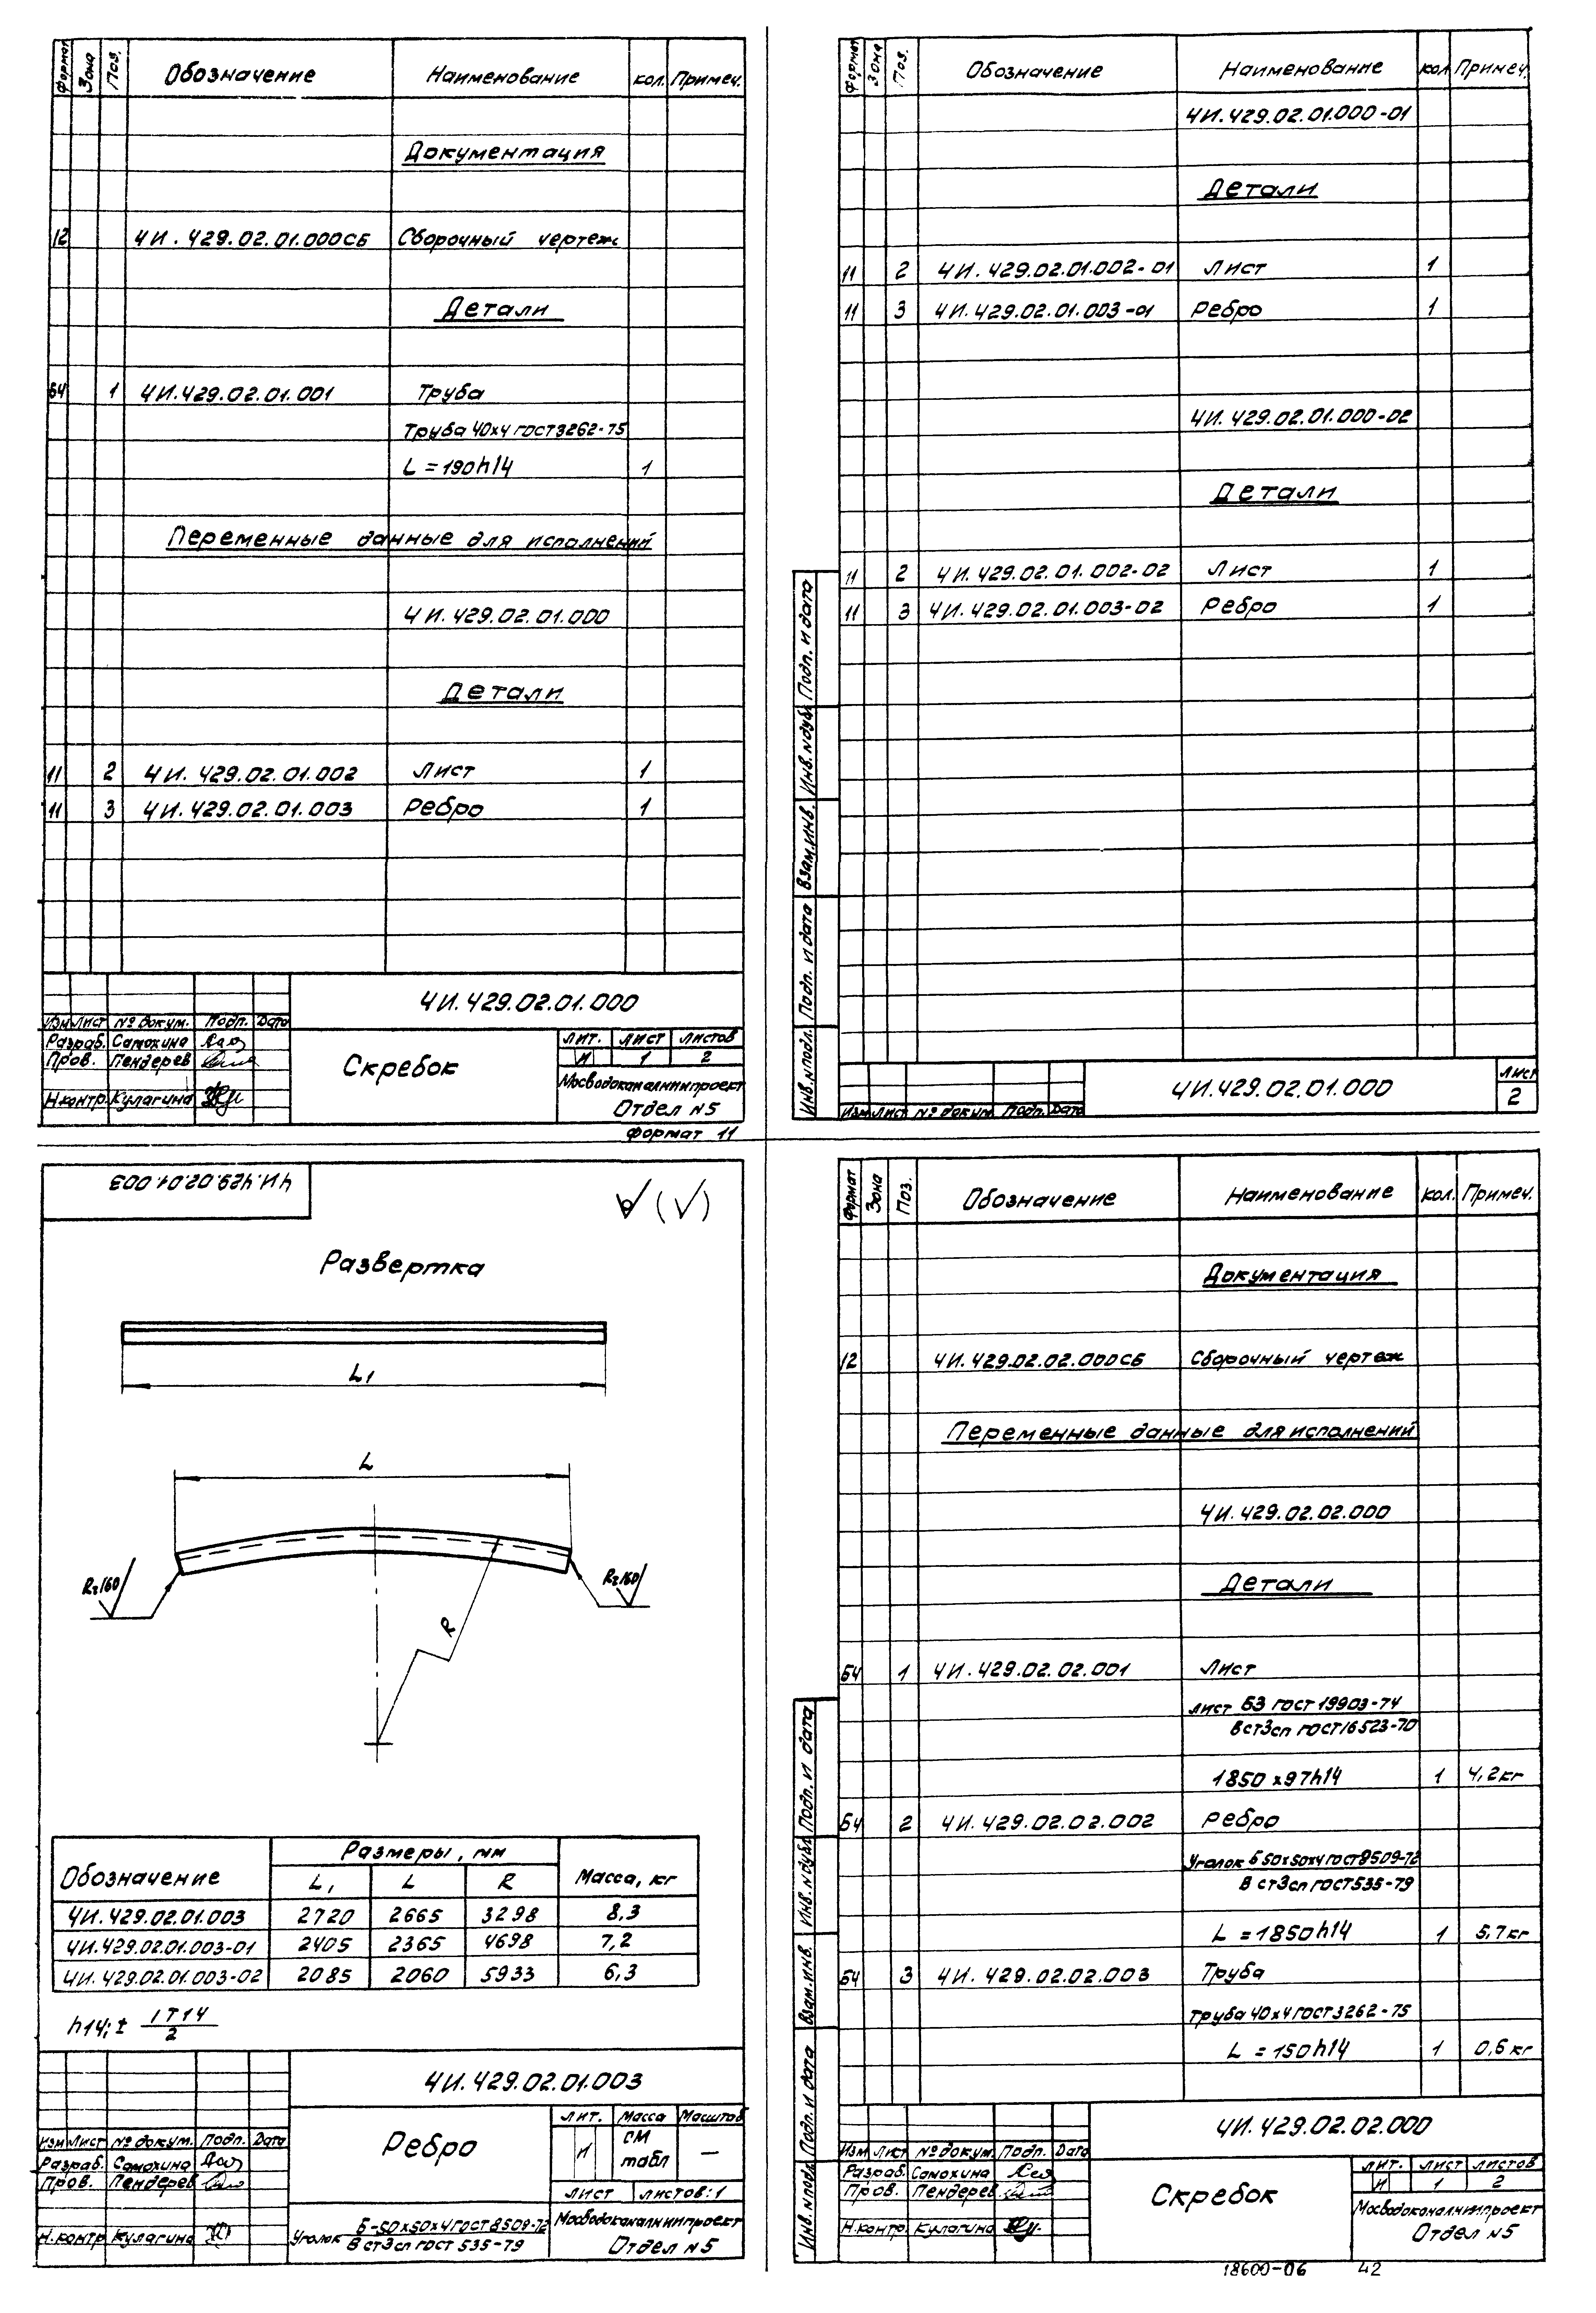 Формат Зона Поз. Обозначение Наименование Кол. Примеч.
Документация
12 4И.429.02.01.000СБ Сборочный чертеж
Детали
Б4 1 4И.429.02.01.001 Труба
Труба 40х4 ГОСТ 3262-75
L = 190h14 1
Переменные данные для исполнений
4И.429.02.01.000
Детали
11 2 4И.429.02.01.002 Лист 1
11 3 4И.429.02.01.003 Ребро 1
4И.429.02.01.000
Изм Лист № докум. Подп. Дата
Разраб. Самохина
Пров. Пендерев
Н.контр. Кулагина
Скребок
Лит. Лист Листов
И 1 2
Мосводоканалниипроект
Отдел №5
Формат 11
Формат Зона Поз. Обозначение Наименование Кол. Примеч.
4И.429.02.01.000-01
Детали
11 2 4И.429.02.01.002-01 Лист 1
11 3 4И.429.02.01.003-01 Ребро 1
4И.429.02.01.000-02
Детали
11 2 4И.429.02.01.002-02 Лист 1
11 3 4И.429.02.01.003-02 Ребро 1
Инв.№подл. Подп. и дата Взам.инв. Инв.№дубл. Подп. и дата
Изм Лист № докум. Подп. Дата
4И.429.02.01.000
Лист
2
4И.429.02.01.003
(√)
Развертка
L1
L
Rz160
Rz160
R
Обозначение Размеры, мм Масса, кг
L1 L R
4И.429.02.01.003 2720 2665 3298 8,3
4И.429.02.01.003-01 2405 2365 4698 7,2
4И.429.02.01.003-02 2085 2060 5933 6,3
h14; ± IT14/2
4И.429.02.01.003
Изм Лист № докум. Подп. Дата
Разраб. Самохина
Пров. Пендерев
Н.контр. Кулагина
Ребро
Лит. Масса Масштаб
И см табл —
Лист Листов: 1
Уголок Б-50х50х4 ГОСТ 8509-72
В ст3сп ГОСТ 535-79
Мосводоканалниипроект
Отдел №5
Формат Зона Поз. Обозначение Наименование Кол. Примеч.
Документация
12 4И.429.02.02.000СБ Сборочный чертеж
Переменные данные для исполнений
4И.429.02.02.000
Детали
Б4 1 4И.429.02.02.001 Лист
Лист Б3 ГОСТ 19903-74
Вст3сп ГОСТ 16523-70
1850х97h14 1 4,2кг
Б4 2 4И.429.02.02.002 Ребро
Уголок Б 50х50х4 ГОСТ 8509-72
В ст3сп ГОСТ 535-79
L = 1850h14 1 5,7кг
Б4 3 4И.429.02.02.003 Труба
Труба 40х4 ГОСТ 3262-75
L = 150h14 1 0,6кг
Инв.№подл. Подп. и дата Взам.инв. Инв.№дубл. Подп. и дата
4И.429.02.02.000
Изм Лист № докум. Подп. Дата
Разраб. Самохина
Пров. Пендерев
Н.контр. Кулагина
Скребок
Лит. Лист Листов
И 1 2
Мосводоканалниипроект
Отдел №5
18600-06 42